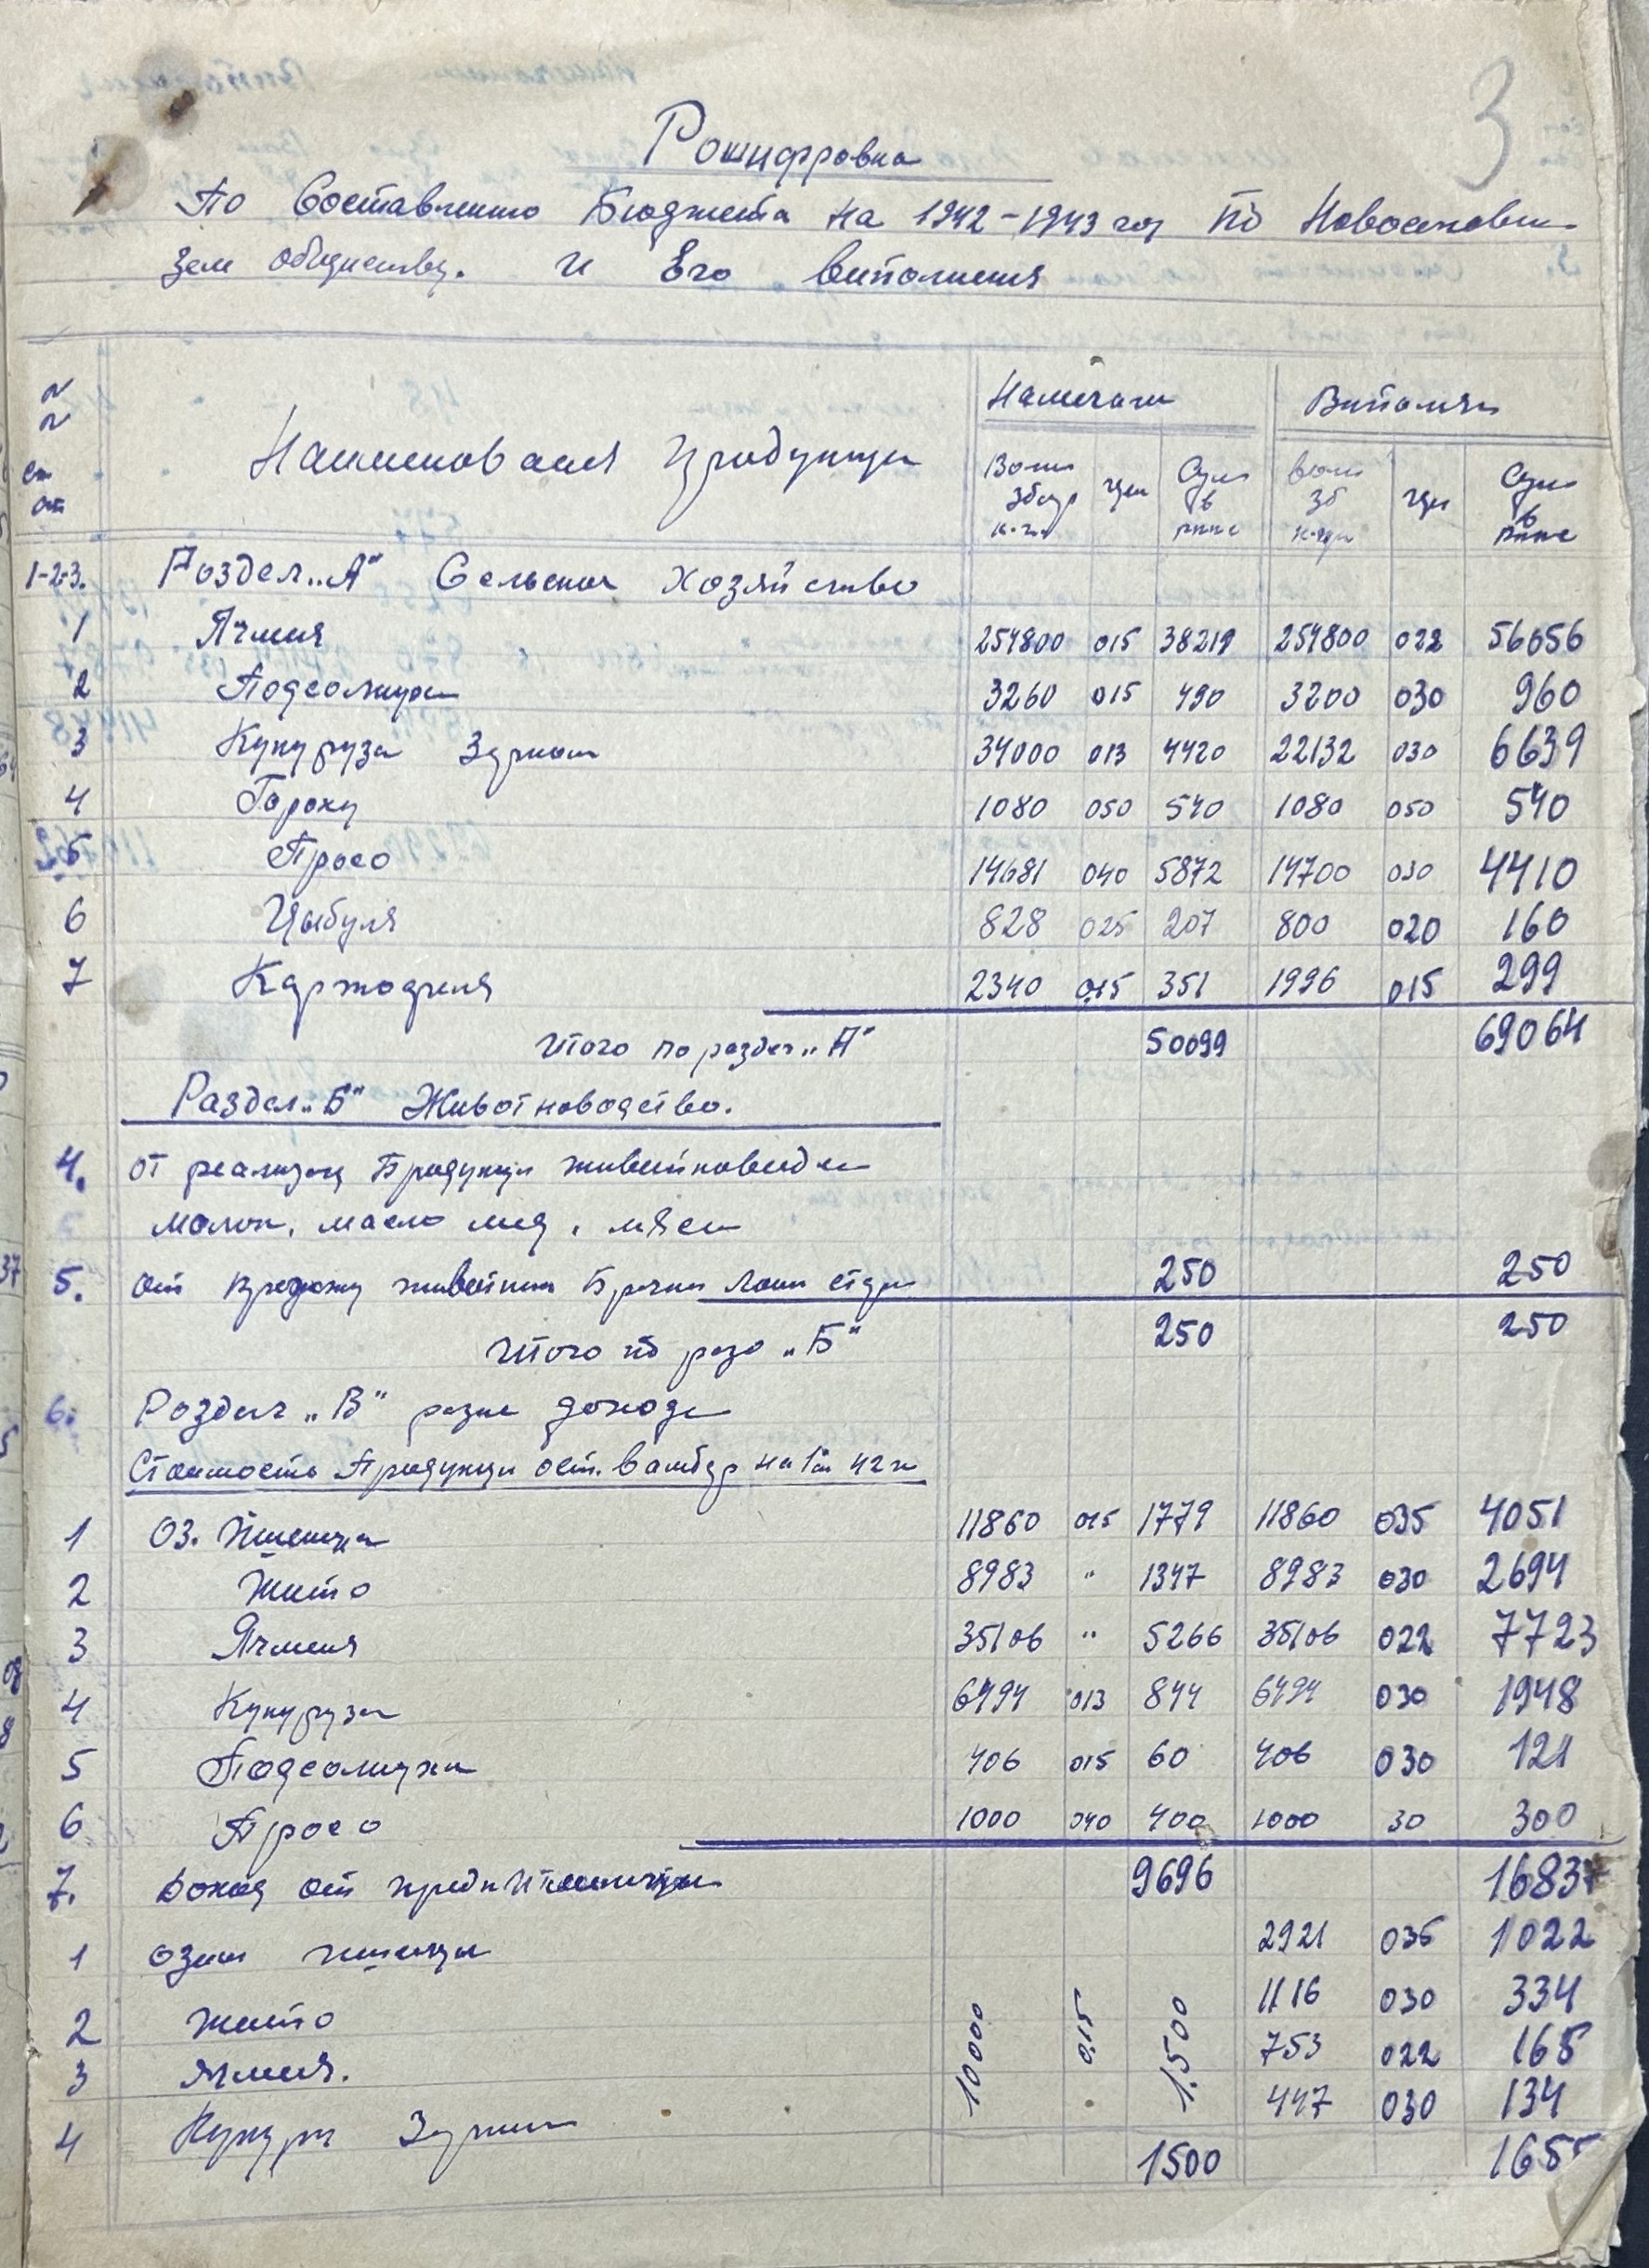 3
Рошифровка
По Составлению Бюджета на 1942-1943 год по
зем обществу. и Его виполнения
№
№
ст
ат
Наименования продукции
Намечали
Виполнен
Вали
збор
к-г.
цен
Сума
в
вали
зб
цен
Сума
в
1-2-3. Роздел „А" Сельское Хозяйство
1 Ячменя 254800 015 38219 254800 022 56056
2 Подсолнуха 3260 015 490 3200 030 960
3 Кукуруза Зерном 34000 013 4420 22132 030 6639
4 Гороху 1080 050 540 1080 050 540
5 Просо 14681 040 5872 14700 030 4410
6 Цыбуля 828 025 207 800 020 160
7 Картофеля 2340 015 351 1996 015 299
Итого по раздел „А" 50099 69064
Раздел „Б" Животноводство.
4. от реализац Продукци животноводи
молок, масло мед, мяса
5. от продажу животних 250 250
Итого по разд „Б" 250 250
6. Роздел „В" разни доходи
Стоимость Продукци ост. в амбар на 42 г
1 Оз. Пшеница 11860 015 1779 11860 035 4051
2 Жито 8983 " 1347 8983 030 2694
3 Ячменя 35106 " 5266 35106 022 7723
4 Кукуруза 6494 013 844 6494 030 1948
5 Подсолнухи 406 015 60 406 030 121
6 Просо 1000 040 400 1000 30 300
9696 16837
7. Доход от
1 озим пшеници 2921 035 1022
2 жито 10000 0.15 1.500 1116 030 334
3 ячменя. 753 022 165
4 Кукуруз Зерном 447 030 134
1500 1655